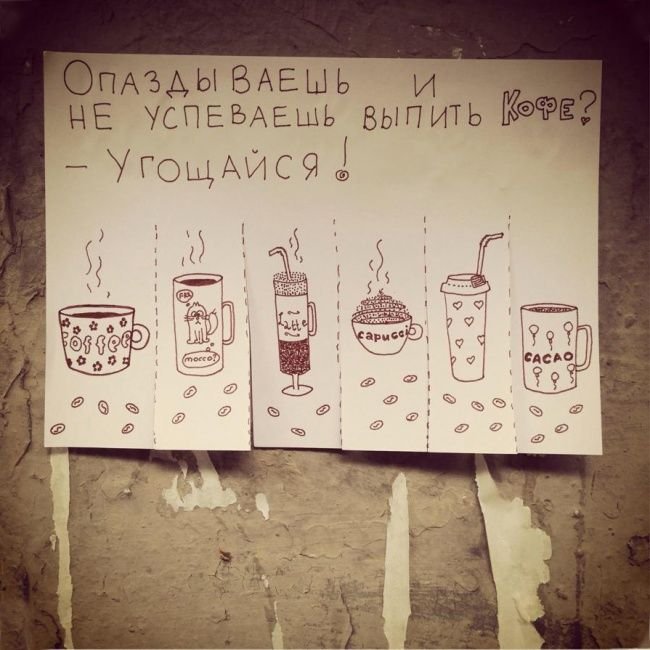 Опаздываешь и
не успеваешь выпить кофе?
- Угощайся!
coffee
мяу
mocco?
Latte
capucci
CACAO